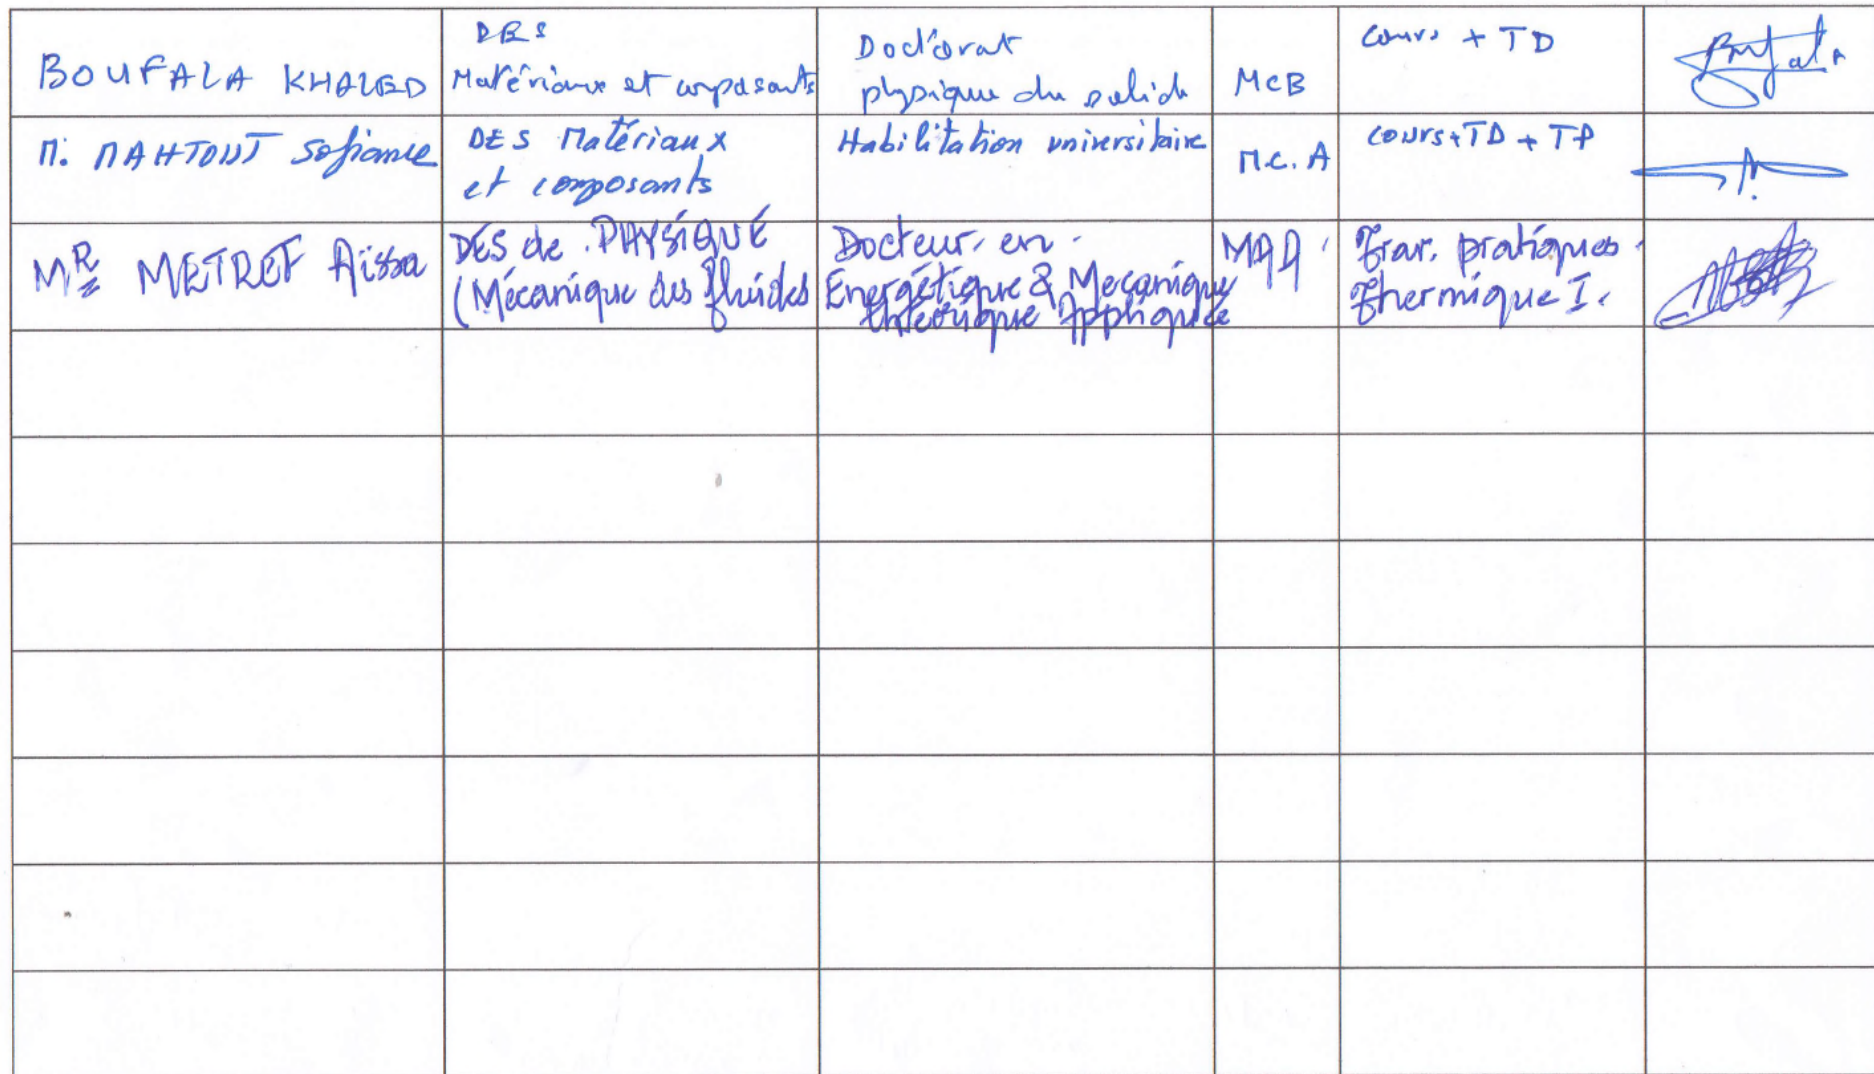 BOUFALA KHALED
DES
Matériaux et composants
Doctorat
physique du solide
MCB
Cours + TD
M. MAHTOUT Sofiane
DES Matériaux
et composants
Habilitation universitaire
M.C.A
Cours+TD + TP
MR METREF Aissa
DES de PHYSIQUE
(Mécanique des fluides
Docteur en
Energétique & Mecanique
théorique Appliquée
MAA
Trav. pratiques
Thermique I.